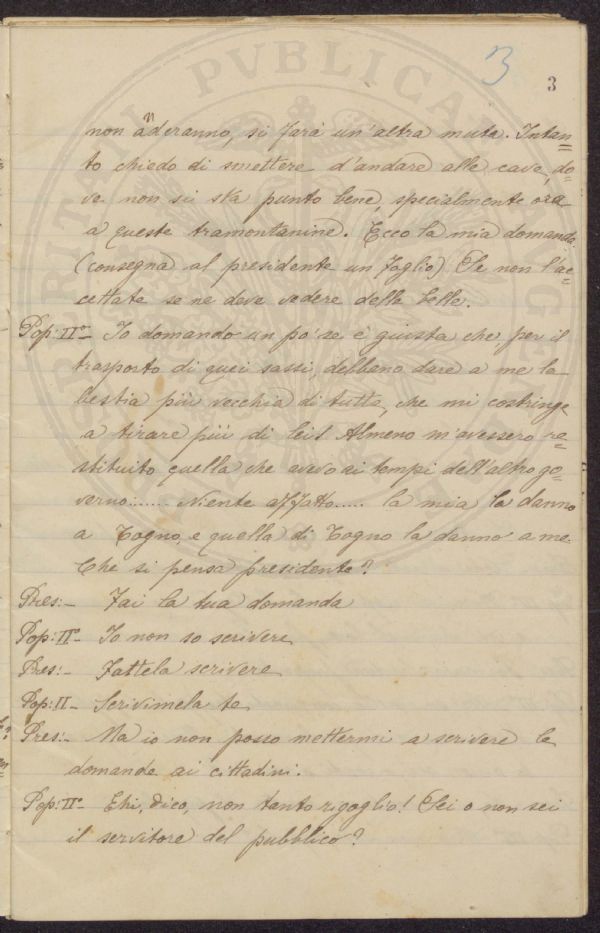 3
3
non anderanno, si farà un'altra muta. Intan=
to chiedo di smettere d'andare alle cave, do=
ve non si sta punto bene, specialmente ora
a queste tramontanine. Ecco la mia domanda
(consegna al presidente un foglio) Se non l'ac=
cettate se ne deve vedere delle belle.
Pop: IIº- Io domando un po' se è giusta che, per il
trasporto di quei sassi, debbano dare a me la
bestia più vecchia di tutte, che mi costringe
a tirare più di lei! Almeno m'avessero re=
stituito quella che avevo ai tempi dell'altro go=
verno....... Niente affatto..... la mia la danno
a Togno, e quella di Togno la danno a me.
Che si pensa presidente?
Pres:- Fai la tua domanda
Pop: IIº- Io non so scrivere
Pres:- Fattela scrivere
Pop: II- Scrivimela te
Pres:- Ma io non posso mettermi a scrivere le
domande ai cittadini.
Pop: IIº- Ehi, dico, non tanto rigoglio! Sei o non sei
il servitore del pubblico?